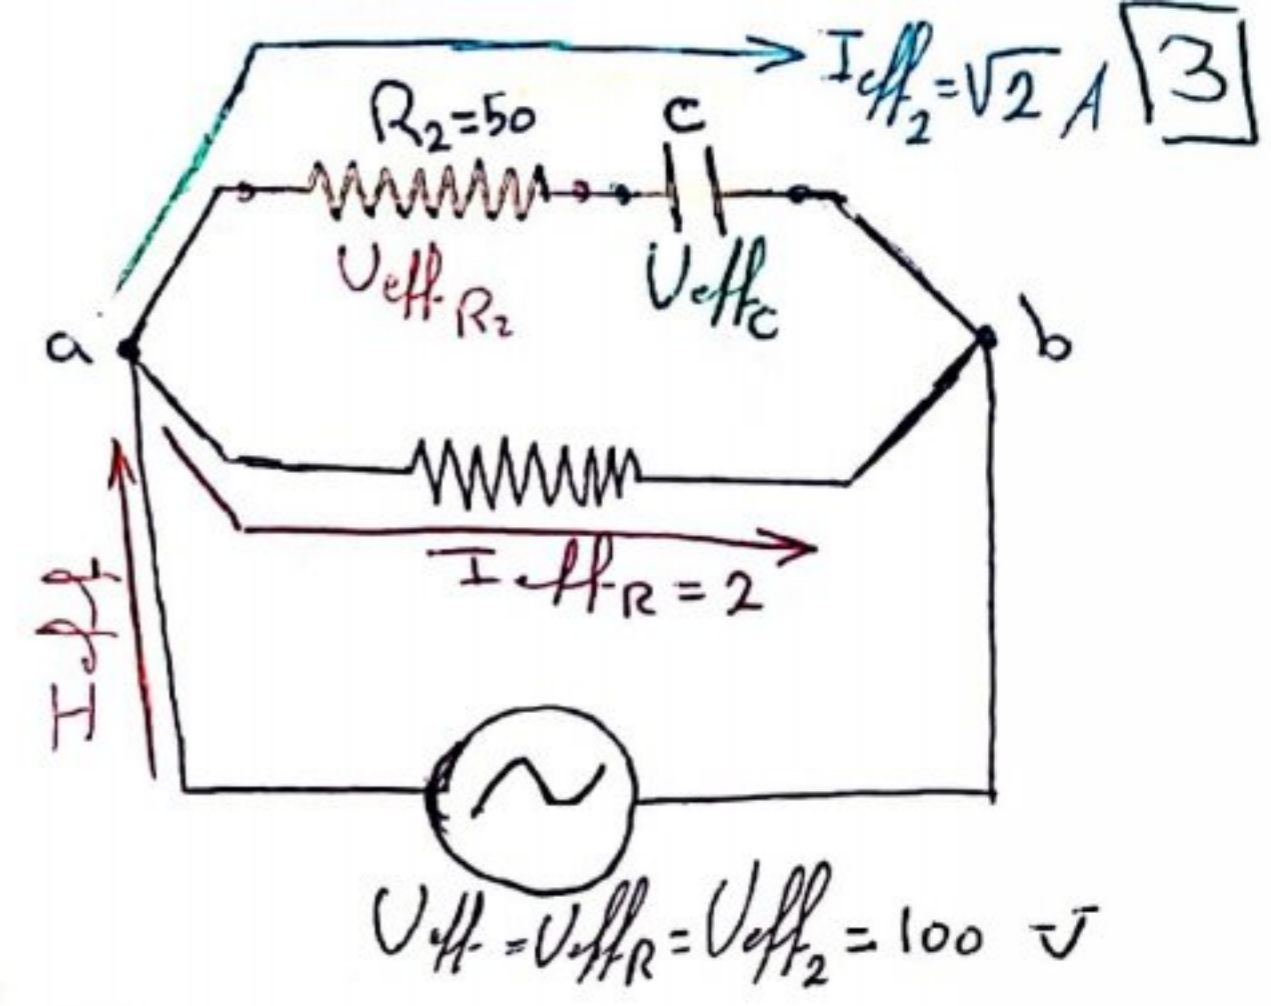 I eff₂ = √2 A 3
R₂=50 C
U eff R₂ U eff c
a b
I eff R = 2
I eff
U eff = U eff R = U eff₂ = 100 V